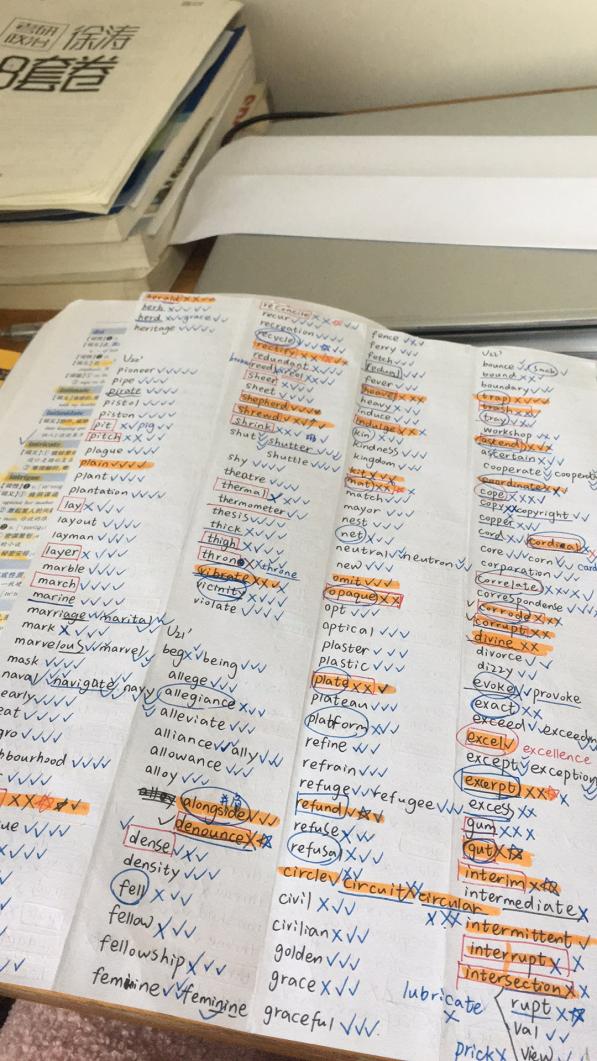 考研
政治
徐涛
8套卷
herald
herb
herd grace
heritage
U20'
pioneer
pipe
pirate
pistol
piston
pit pig
pitch
plague
plain
plant
plantation
lay
layout
layman
layer
marble
march
marine
marriage marital
mark
marvelous marvel
mask
naval navigate navy
early
reconcile
recur
recreation
recycle
rectify
redundant
reed reel
sheer
sheet
shepherd
shrewd
shrink
shut shutter
shuttle
shy
theatre
thermal
thermometer
thesis
thick
thigh
throne throne
vibrate
vicinity
violate
U21'
beg being
allege
allegiance
alleviate
alliance ally
allowance
alloy
alongside
denounce
dense
density
fell
fellow
fellowship
feminine feminine
fence
ferry
fetch
feudal
fever
heavy
induce
indulge
kin
kindness
kingdom
kit
match
mayor
nest
net
neutral neutron
new
omit
opaque
opt
optical
plaster
plastic
plate
plateau
platform
refine
refrain
refuge refugee
refund
refuse
refusal
circle circuit circular
civil
civilian
golden
grace
graceful
U22'
bounce
bound
boundary
trap
trash
tray
workshop
ascend
ascertain
cooperate
coordinate
cope
copy copyright
copper
cord cordial
core corn
corporation
correlate
correspondense
corrode
corrupt
divine
divorce
dizzy
evoke provoke
exact
exceed
excel excellence
except exception
exerpt
excess
gum
gut
interim
intermediate
intermittent
interrupt
intersection
lubricate
rupt
val
view
prick